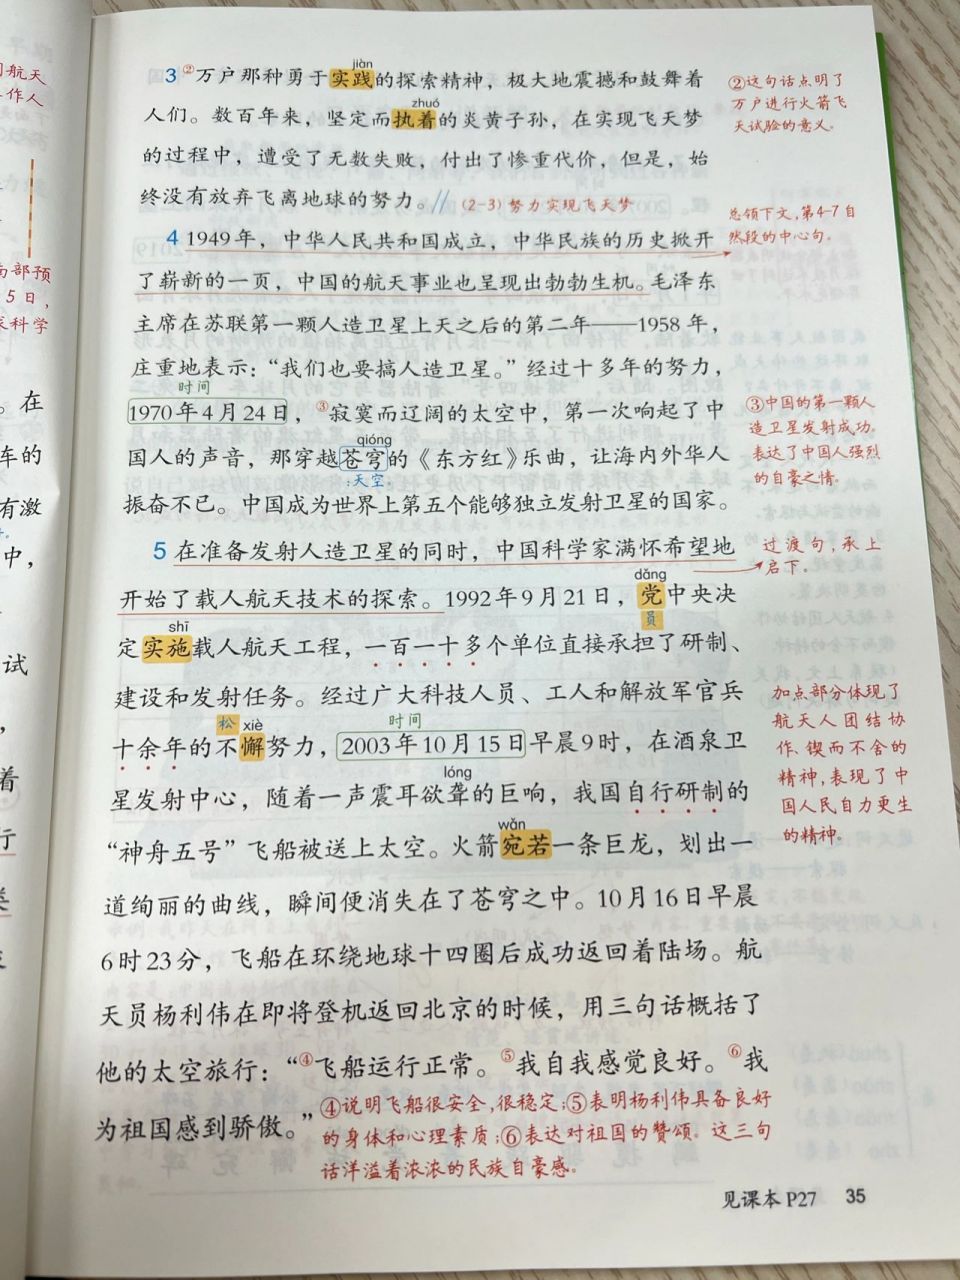 jiàn
3 ②万户那种勇于实践的探索精神，极大地震撼和鼓舞着
zhuó
人们。数百年来，坚定而执着的炎黄子孙，在实现飞天梦
的过程中，遭受了无数失败，付出了惨重代价，但是，始
终没有放弃飞离地球的努力。// (2-3)努力实现飞天梦
②这句话点明了
万户进行火箭飞
天试验的意义。
4 1949年，中华人民共和国成立，中华民族的历史掀开
了崭新的一页，中国的航天事业也呈现出勃勃生机。毛泽东
总领下文，第4-7自
然段的中心句。
主席在苏联第一颗人造卫星上天之后的第二年——1958年，
庄重地表示：“我们也要搞人造卫星。”经过十多年的努力，
时间
1970年4月24日，③寂寞而辽阔的太空中，第一次响起了中
qióng
国人的声音，那穿越苍穹的《东方红》乐曲，让海内外华人
:天空.
振奋不已。中国成为世界上第五个能够独立发射卫星的国家。
③中国的第一颗人
造卫星发射成功。
表达了中国人强烈
的自豪之情。
5 在准备发射人造卫星的同时，中国科学家满怀希望地
dǎng
开始了载人航天技术的探索。1992年9月21日，党中央决
员
过渡句，承上
启下。
shī
定实施载人航天工程，一百一十多个单位直接承担了研制、
建设和发射任务。经过广大科技人员、工人和解放军官兵
松 xiè 时间
十余年的不懈努力，2003年10月15日早晨9时，在酒泉卫
lóng
星发射中心，随着一声震耳欲聋的巨响，我国自行研制的
wǎn
“神舟五号”飞船被送上太空。火箭宛若一条巨龙，划出一
加点部分体现了
航天人团结协
作、锲而不舍的
精神，表现了中
国人民自力更生
的精神。
道绚丽的曲线，瞬间便消失在了苍穹之中。10月16日早晨
6时23分，飞船在环绕地球十四圈后成功返回着陆场。航
天员杨利伟在即将登机返回北京的时候，用三句话概括了
他的太空旅行：“④飞船运行正常。⑤我自我感觉良好。⑥我
为祖国感到骄傲。”
④说明飞船很安全，很稳定；⑤表明杨利伟具备良好
的身体和心理素质；⑥表达对祖国的赞颂。这三句
话洋溢着浓浓的民族自豪感。
见课本P27 35